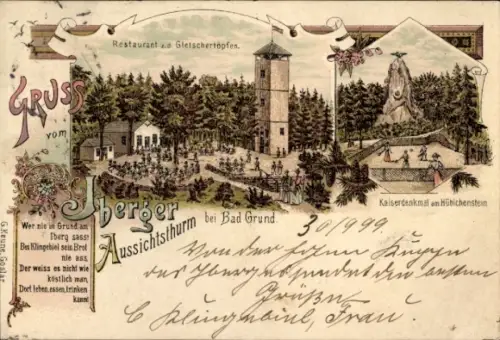 Restaurant a.d. Gletschertöpfen.
Gruss
vom
Iberger
Aussichtsthurm
bei Bad Grund.
Kaiserdenkmal am Hübichenstein
Wer nie in Grund, am
Iberg sass!
Bei Klingebiel sein Brot
nie ass,
Der weiss es nicht wie
köstlich man,
Dort leben, essen, trinken
kann!
G. Keune, Goslar
Von der hohen
des Iberges sendet die besten
Grüße
C Klingebiel, Frau.